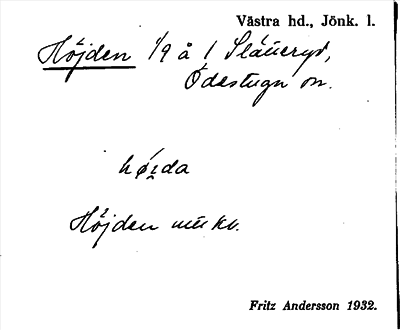 Västra hd., Jönk. l.
Höjden 1/9 å 1 Slätteryd,
Ödestugu sn.
høi̯da
Höjden
Fritz Andersson 1932.